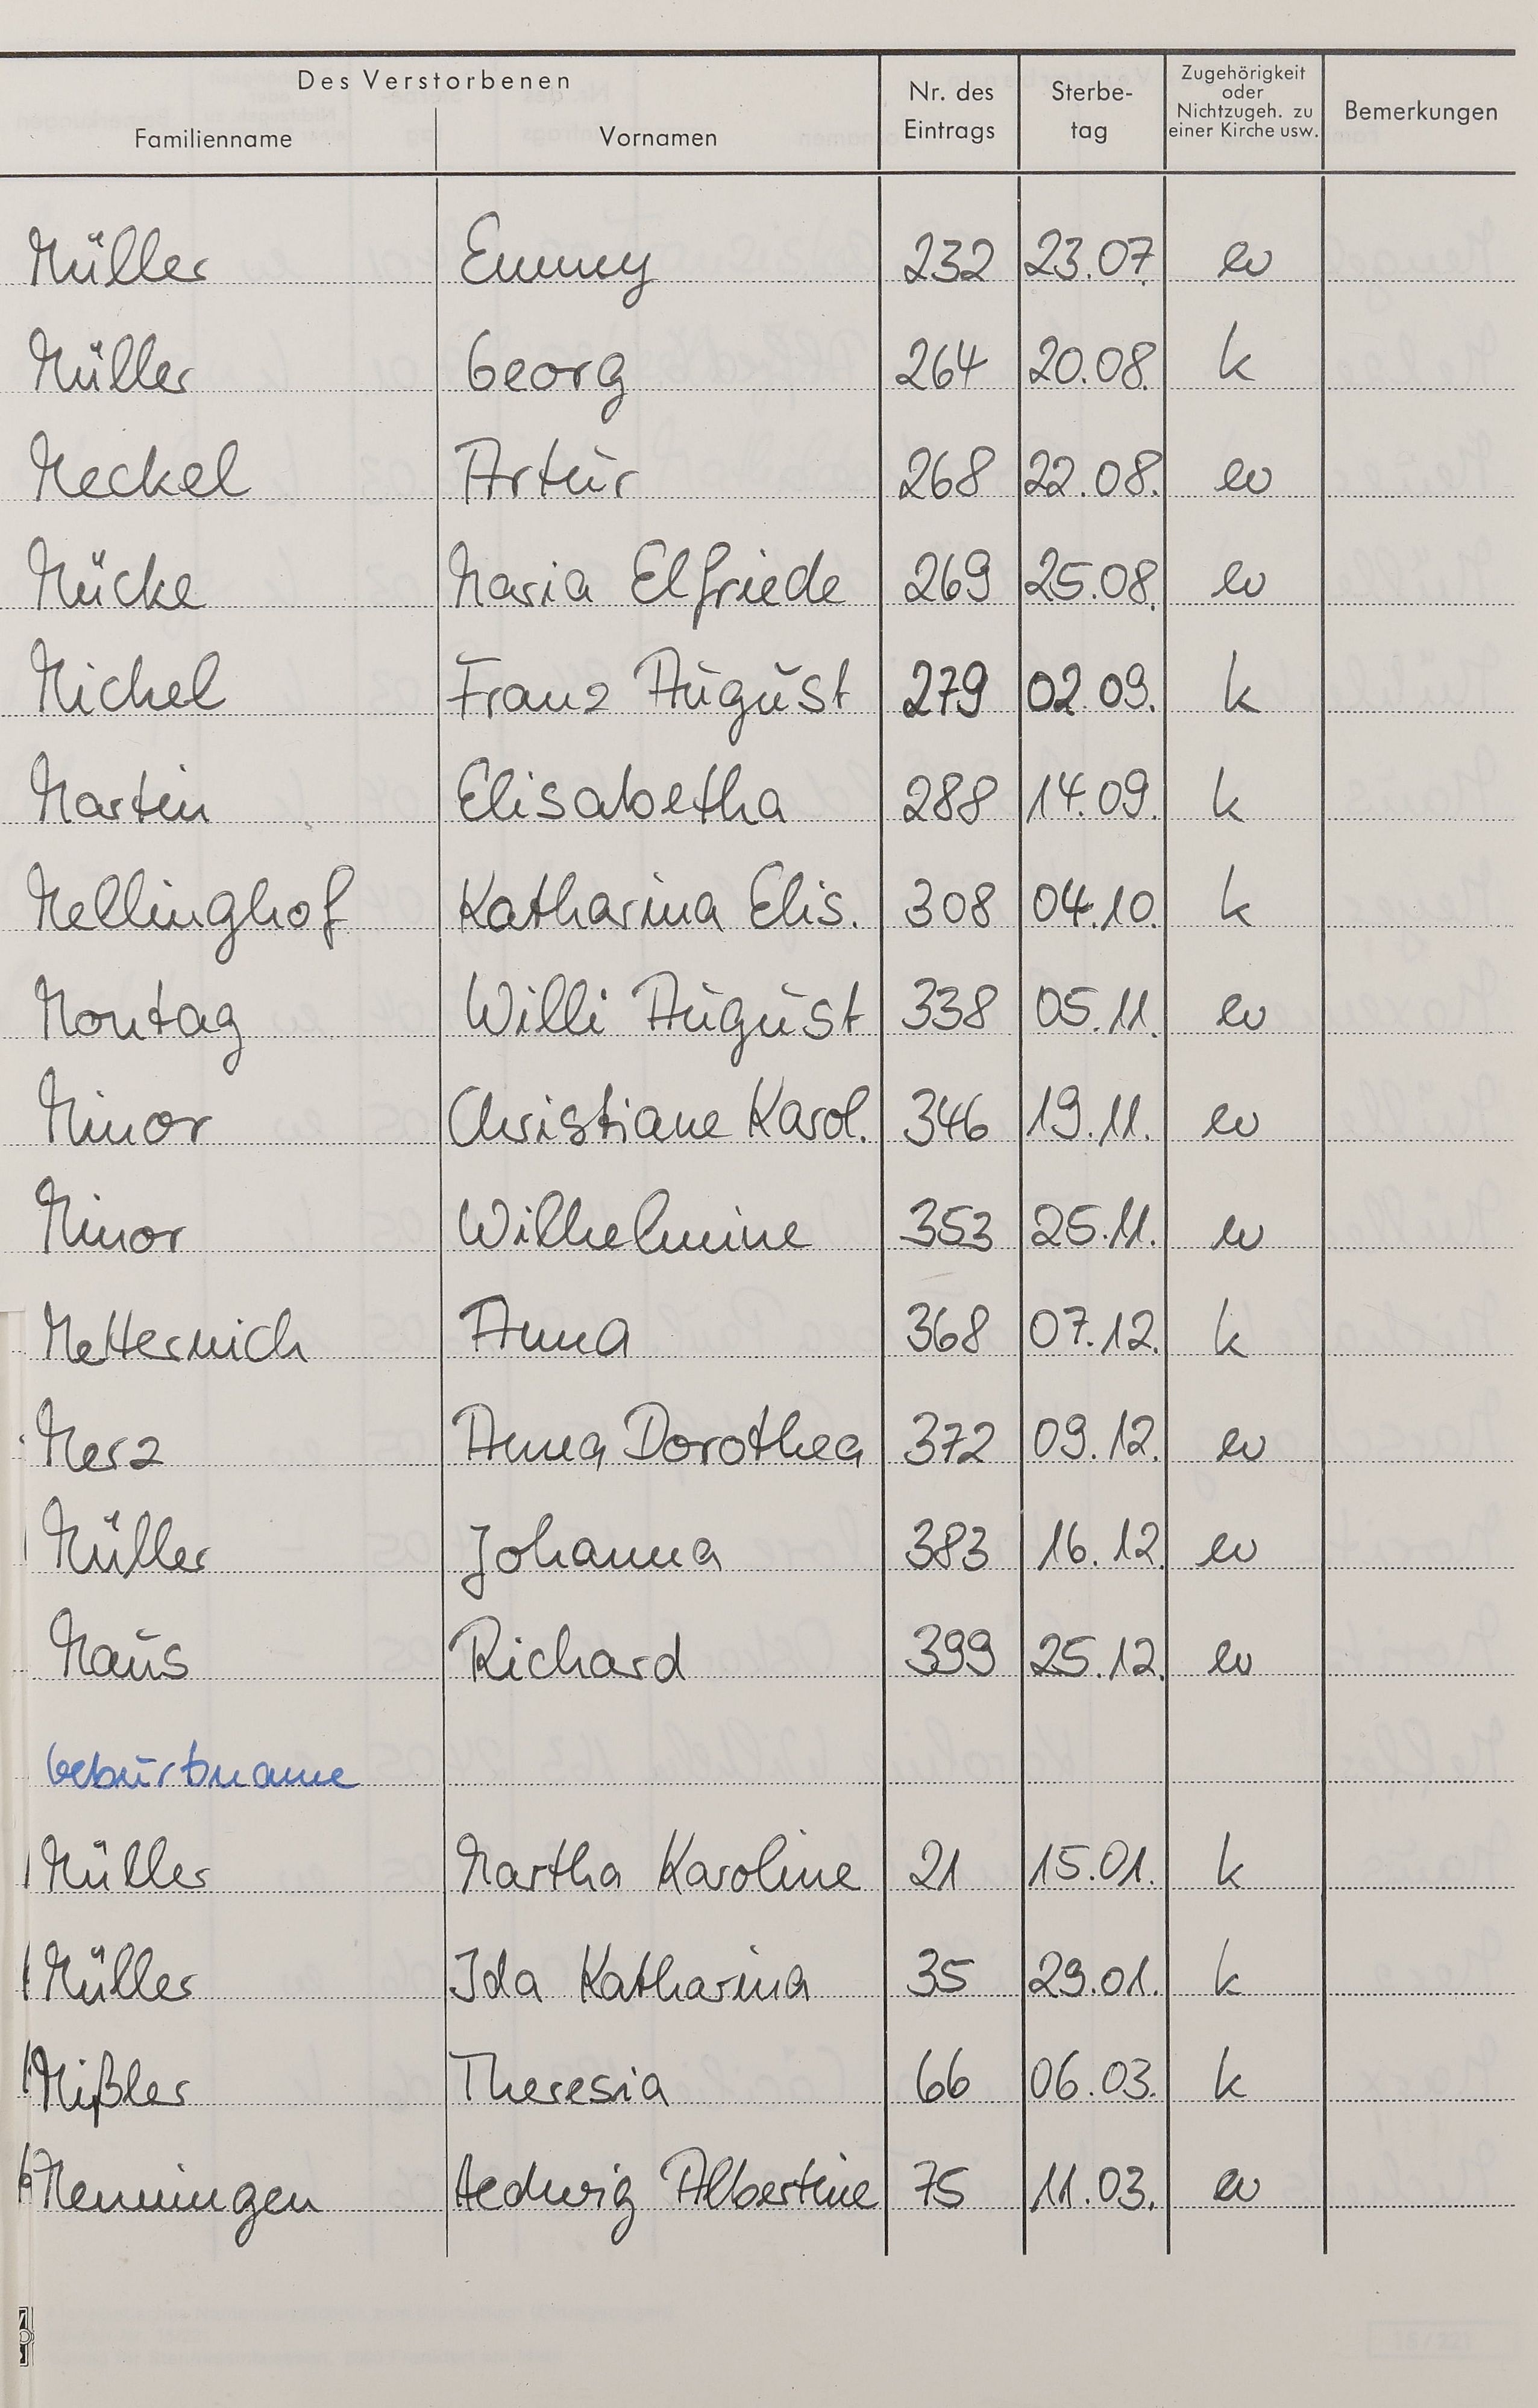 Des Verstorbenen
Familienname Vornamen Nr. des Eintrags Sterbe-tag Zugehörigkeit oder Nichtzugeh. zu einer Kirche usw. Bemerkungen
Müller Emmy 232 23.07. ev
Müller Georg 264 20.08. k
Meckel Artur 268 22.08. ev
Mücke Maria Elfriede 269 25.08. ev
Michel Franz August 279 02.09. k
Martin Elisabetha 288 14.09. k
Mellinghof Katharina Elis. 308 04.10. k
Montag Willi August 338 05.11. ev
Minor Christiane Karol. 346 19.11. ev
Minor Wilhelmine 353 25.11. ev
Metternich Anna 368 07.12. k
Merz Anna Dorothea 372 09.12. ev
Müller Johanna 383 16.12. ev
Maus Richard 399 25.12. ev
Geburtsname
Müller Martha Karoline 21 15.01. k
Müller Ida Katharina 35 29.01. k
Mißler Theresia 66 06.03. k
Menningen Hedwig Albertine 75 11.03. ev